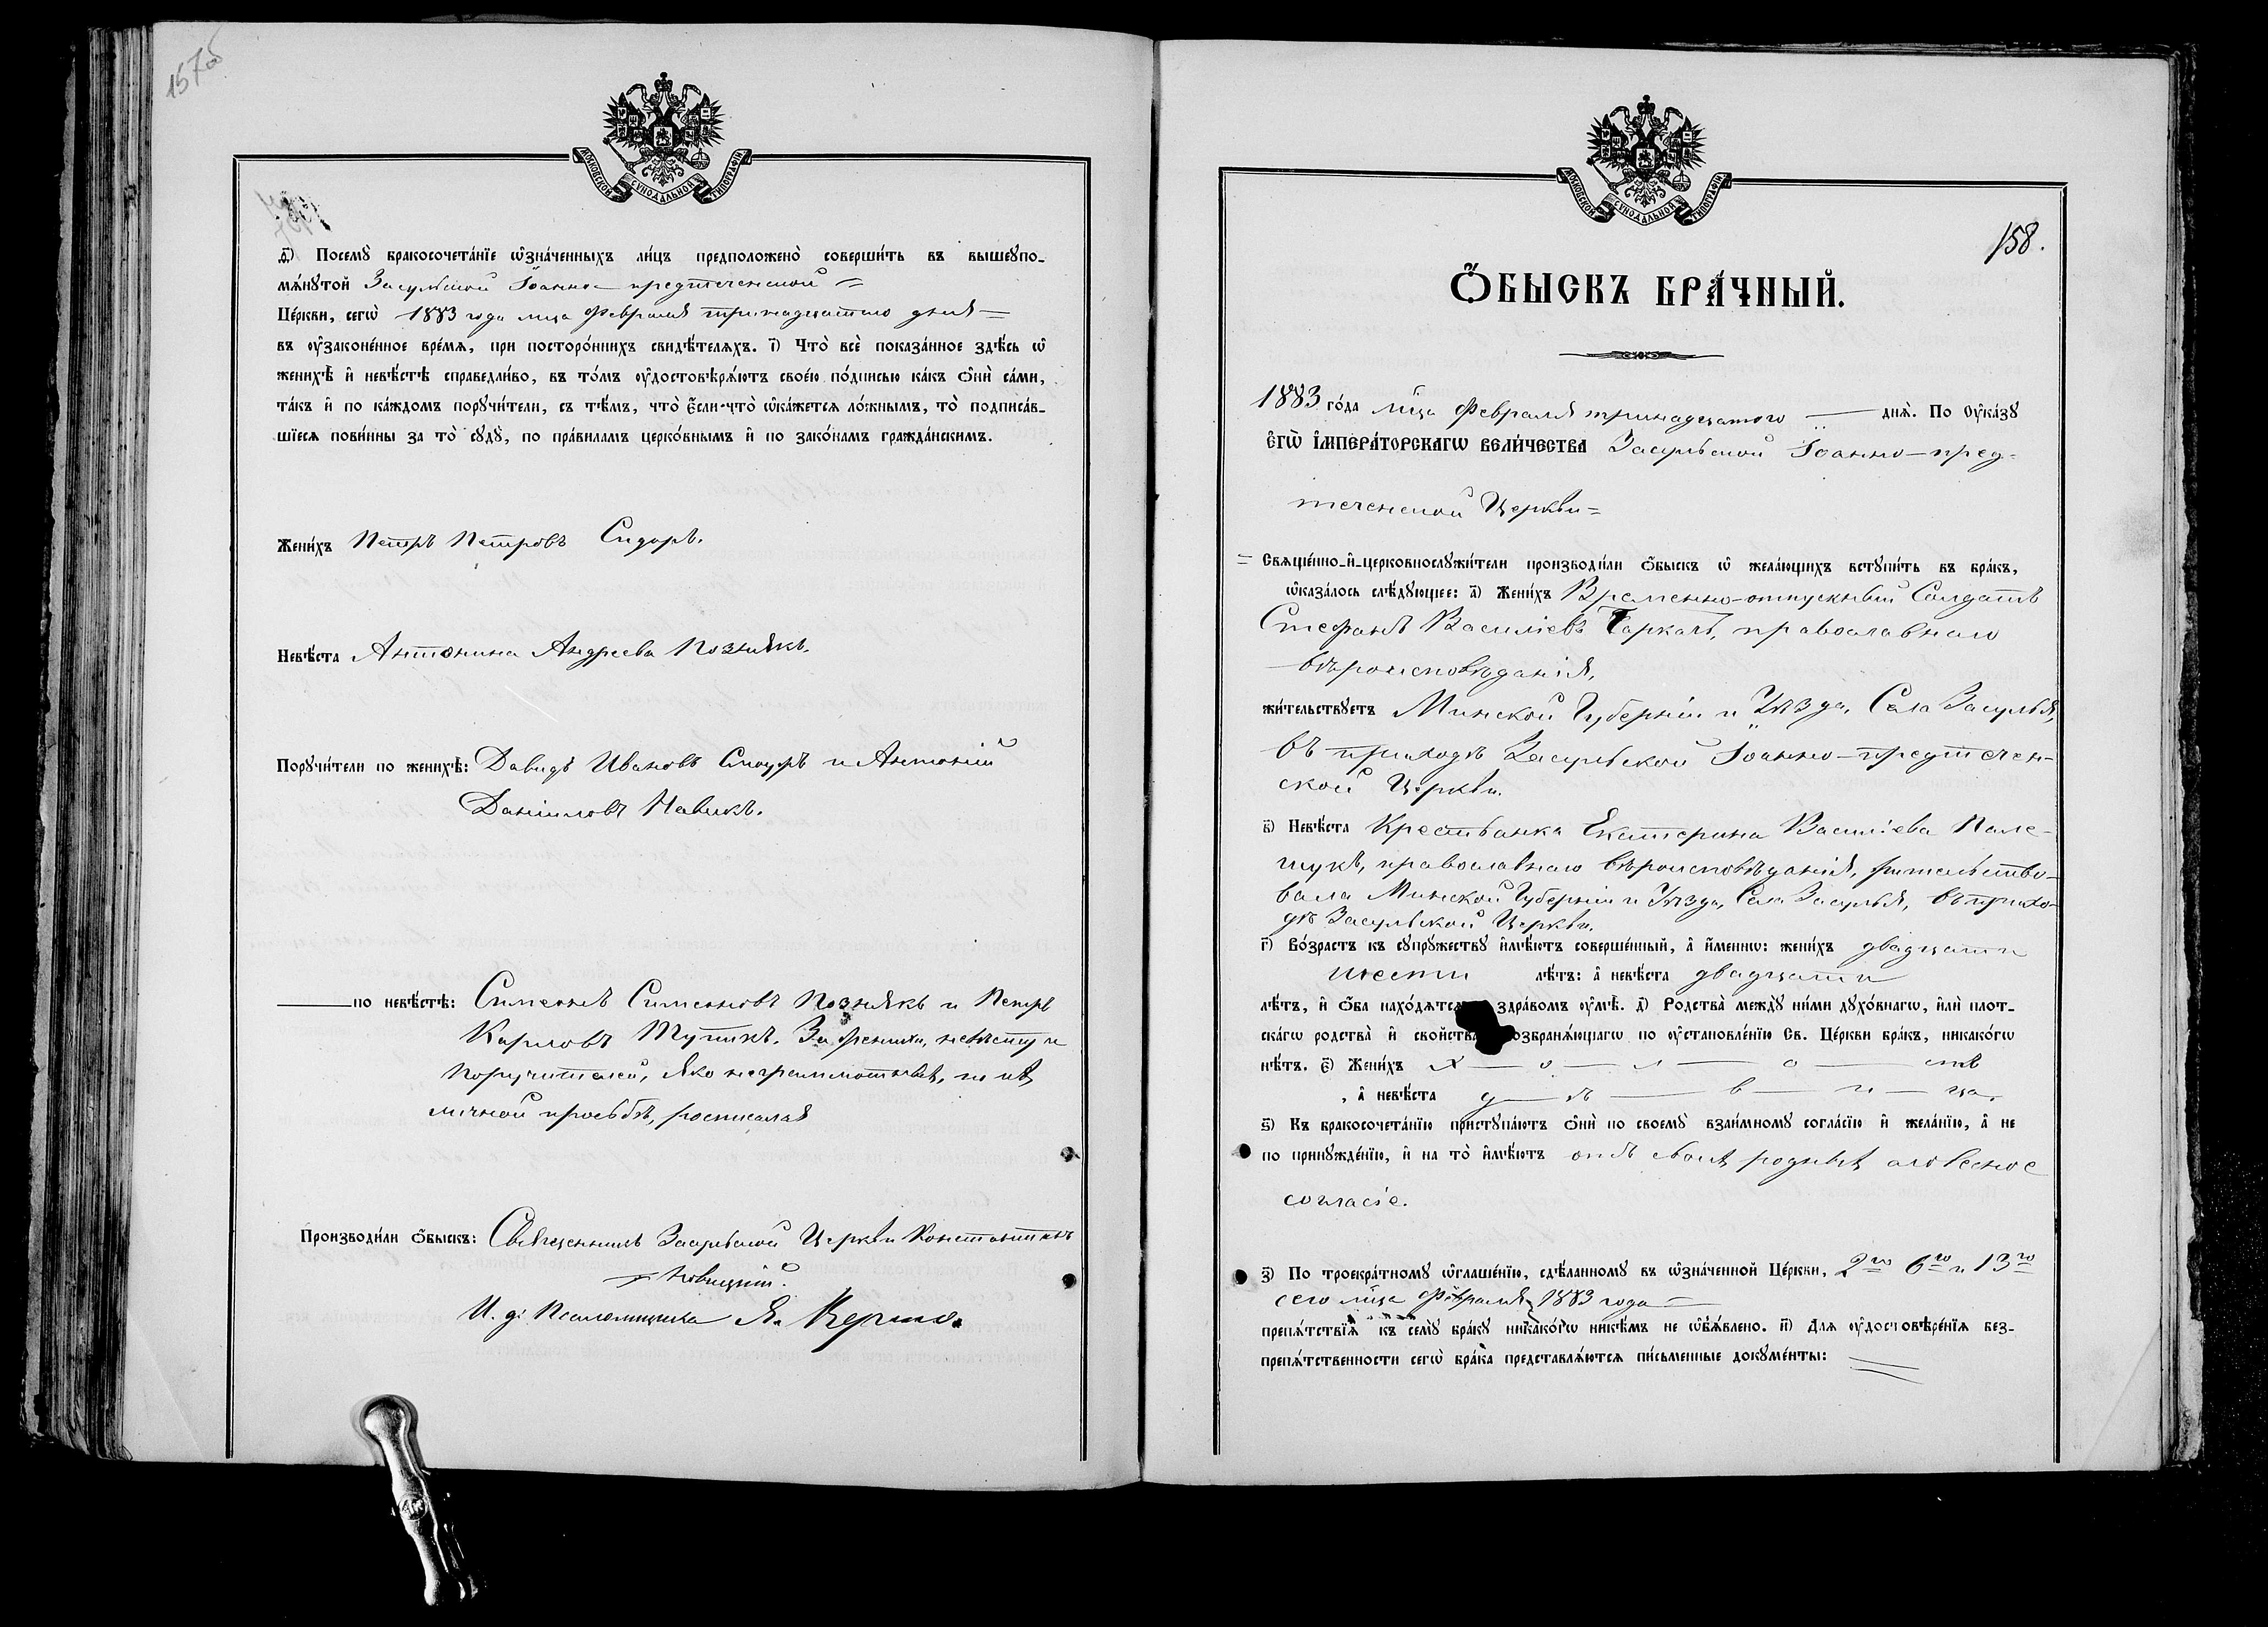 157об
МОСКОВСКОЙ СѴНОДАЛЬНОЙ ТИПОГРАФІИ
Посемꙋ̀ бракосочета́нїе ѡ҆зна́ченныхъ ли́цъ предположено̀ соверши́ть въ вышеꙋпо-
мѧ́нꙋтой Засульской Іоанно-предтеченской =
Це́ркви, сегѡ̀ 1883 года м-ца Февраля тринадцатаго дня —
въ ᲂу҆законе́нное вре́мѧ, при посторо́ннихъ свидѣ́телѧхъ. і҃) Что̀ всѐ показа́нное здѣ́сь ѡ҆
женихѣ̀ и҆ невѣ́стѣ справедли́во, въ то́мъ ᲂу҆достовѣрѧ́ютъ свое́ю по́дписью ка́къ ѻ҆нѝ са́ми,
та́къ и҆ по ка́ждомъ порꙋчи́тели, съ тѣ́мъ, что̀ є҆́сли что̀ ѡ҆ка́жетсѧ ло́жнымъ, то̀ подписа́в-
шїесѧ пови́нны за то̀ сꙋдꙋ̀, по пра́виламъ церко́внымъ и҆ по зако́намъ гражда́нскимъ.
Жени́хъ Петръ Петровъ Сидоръ.
Невѣ́ста Антонина Андреева Познякъ.
Порꙋчи́тели по женихѣ̀: Давидъ Ивановъ и Антоній
Даніиловъ Павикъ.
по невѣ́стѣ: Сименъ Сименовъ Познякъ и Петръ
Карловъ Тупикъ. За жениха, невѣсту и
поручителей, яко неграмотныхъ, по ихъ
личной просьбѣ, росписался
Производи́ли ѻ҆́быскъ: Священникъ Засульской Церкви Константинъ
Новицкій.
И. д. Псаломщика Я.
МОСКОВСКОЙ СѴНОДАЛЬНОЙ ТИПОГРАФІИ
158.
Ѻ҆́БЫСКЪ БРА́ЧНЫЙ.
1883 го́да м-ца Февраля тринадцатого — днѧ̀. По Оу҆ка́зꙋ
Є҆ГѠ̀ І҆МПЕРА́ТОРСКАГѠ ВЕЛИ́ЧЕСТВА Засульской Іоанно-пред-
теченской Церкви =
= Свѧще́нно-и҆-церковнослꙋжи́тели производи́ли ѻ҆́быскъ ѡ҆ жела́ющихъ встꙋпи́ть въ бра́къ,
ѡ҆каза́лось слѣ́дꙋющее: а҃) Жени́хъ Временно-отпускный Солдатъ
Стефанъ Василіевъ Таркачъ, православнаго
вѣроисповѣданія,
жи́тельствꙋетъ Минской Губерніи и Уѣзда, Села Засулья,
въ приходѣ Засульской Іоанно-предтечен-
ской Церкви.
в҃) Невѣ́ста Крестьянка Екатерина Василіева Пале-
щукъ, православнаго вѣроисповѣданія, жительство-
вала Минской Губерніи и Уѣзда, Села Засулья, въ прихо-
дѣ Засульской Церкви.
г҃) Во́зрастъ къ сꙋпрꙋ́жествꙋ и҆мѣ́ютъ соверше́нный, а҆ и҆́меннѡ: жени́хъ двадцати
шести лѣ́тъ: а҆ невѣ́ста двадцати
лѣ́тъ, и҆ ѻ҆́ба нахо́дѧтсѧ здра́вомъ ᲂу҆мѣ̀. д҃) Родства̀ междꙋ̀ ни́ми дꙋхо́внагѡ, и҆лѝ плот-
ска́гѡ родства̀ и҆ свойства̀ возбранѧ́ющагѡ по ᲂу҆становле́нїю Св. Це́ркви бра́къ, никако́гѡ
нѣ́тъ. є҃) Жени́хъ х — о — л — о — стъ
, а҆ невѣ́ста д — ѣ — в — и — ца.
ѕ҃) Къ бракосочета́нїю пристꙋпа́ютъ ѻ҆нѝ по своемꙋ̀ взаи́мномꙋ согла́сїю и҆ жела́нїю, а҆ не
по принꙋжде́нїю, и҆ на то̀ и҆мѣ́ютъ отъ своихъ родныхъ словесное
согласіе.
з҃) По троекра́тномꙋ ѡ҆глаше́нїю, сдѣ́ланномꙋ въ ѡ҆зна́ченной Це́ркви, 2го 6го и 13го
сего м-ца Февраля 1883 года —
препѧ́тствїѧ къ семꙋ̀ бра́кꙋ никако́гѡ никѣ́мъ не ѡ҆б̾ѧ́влено. и҃) Длѧ ᲂу҆достовѣре́нїѧ без-
препѧ́тственности сегѡ̀ бра́ка представлѧ́ютсѧ пи́сьменные докꙋме́нты: